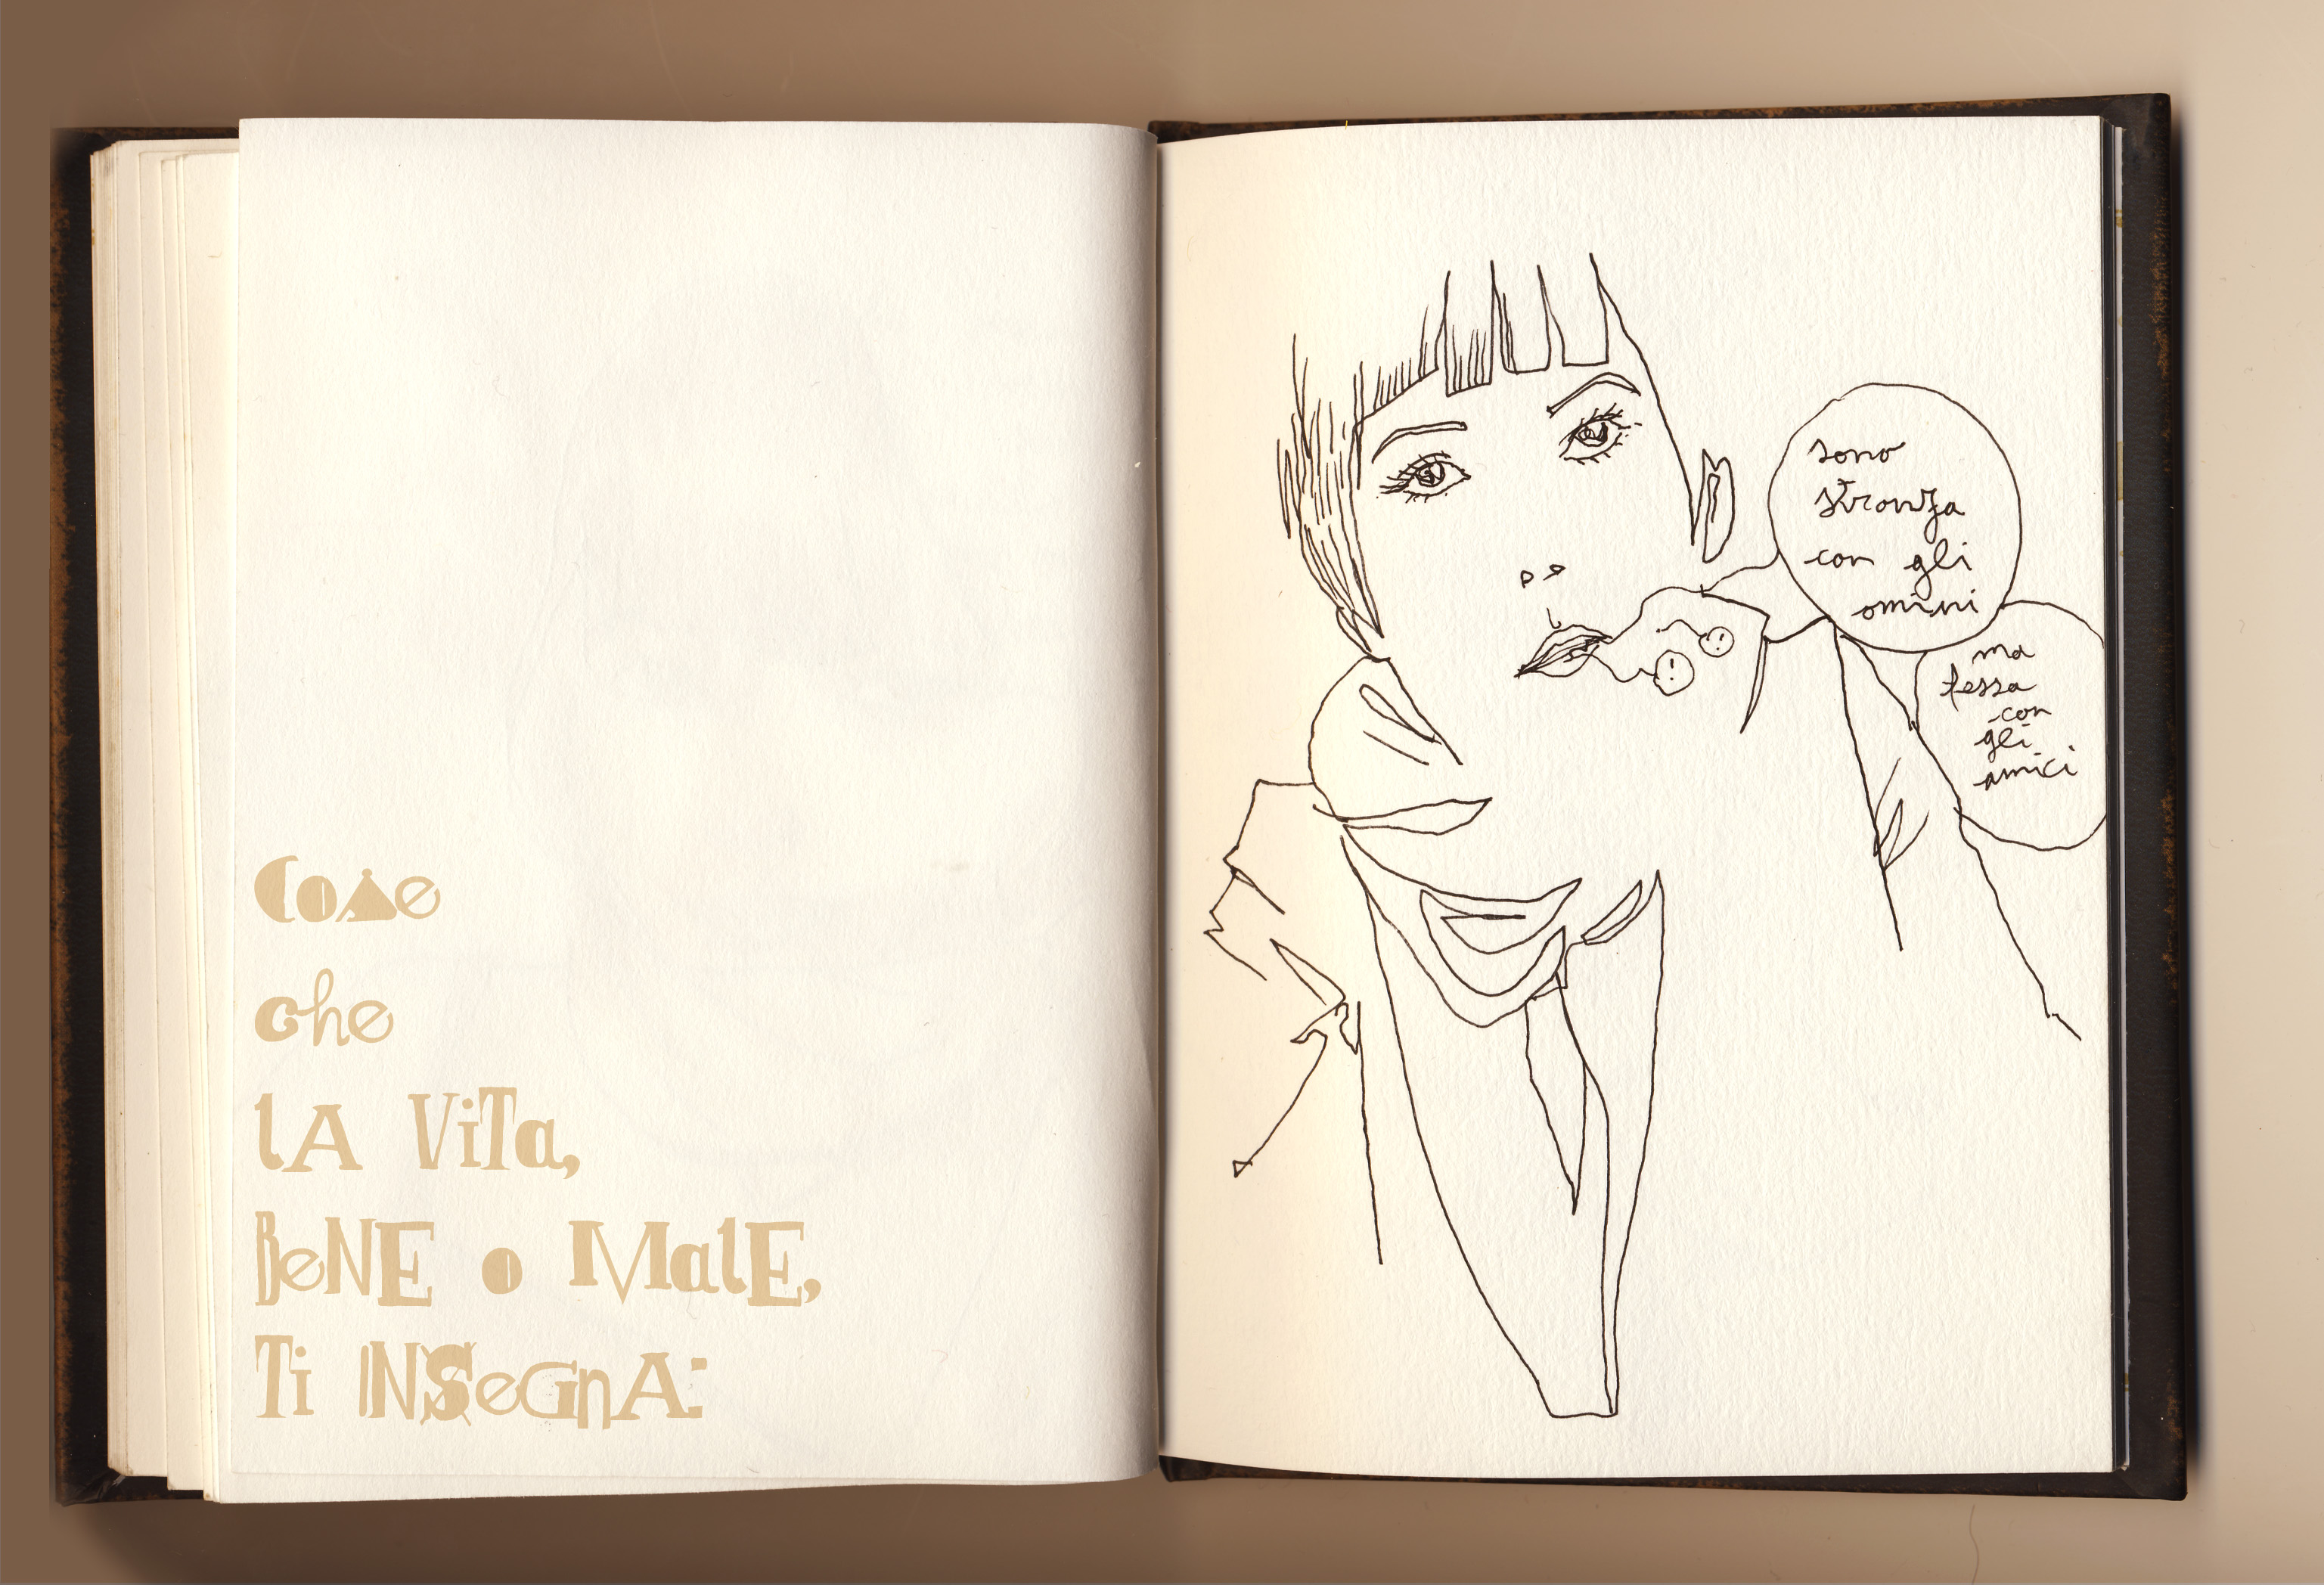 CoSe
che
lA ViTa,
BeNE o MalE,
Ti INSeGnA:
sono
stronza
con gli
omini
ma
fessa
con
gli
amici